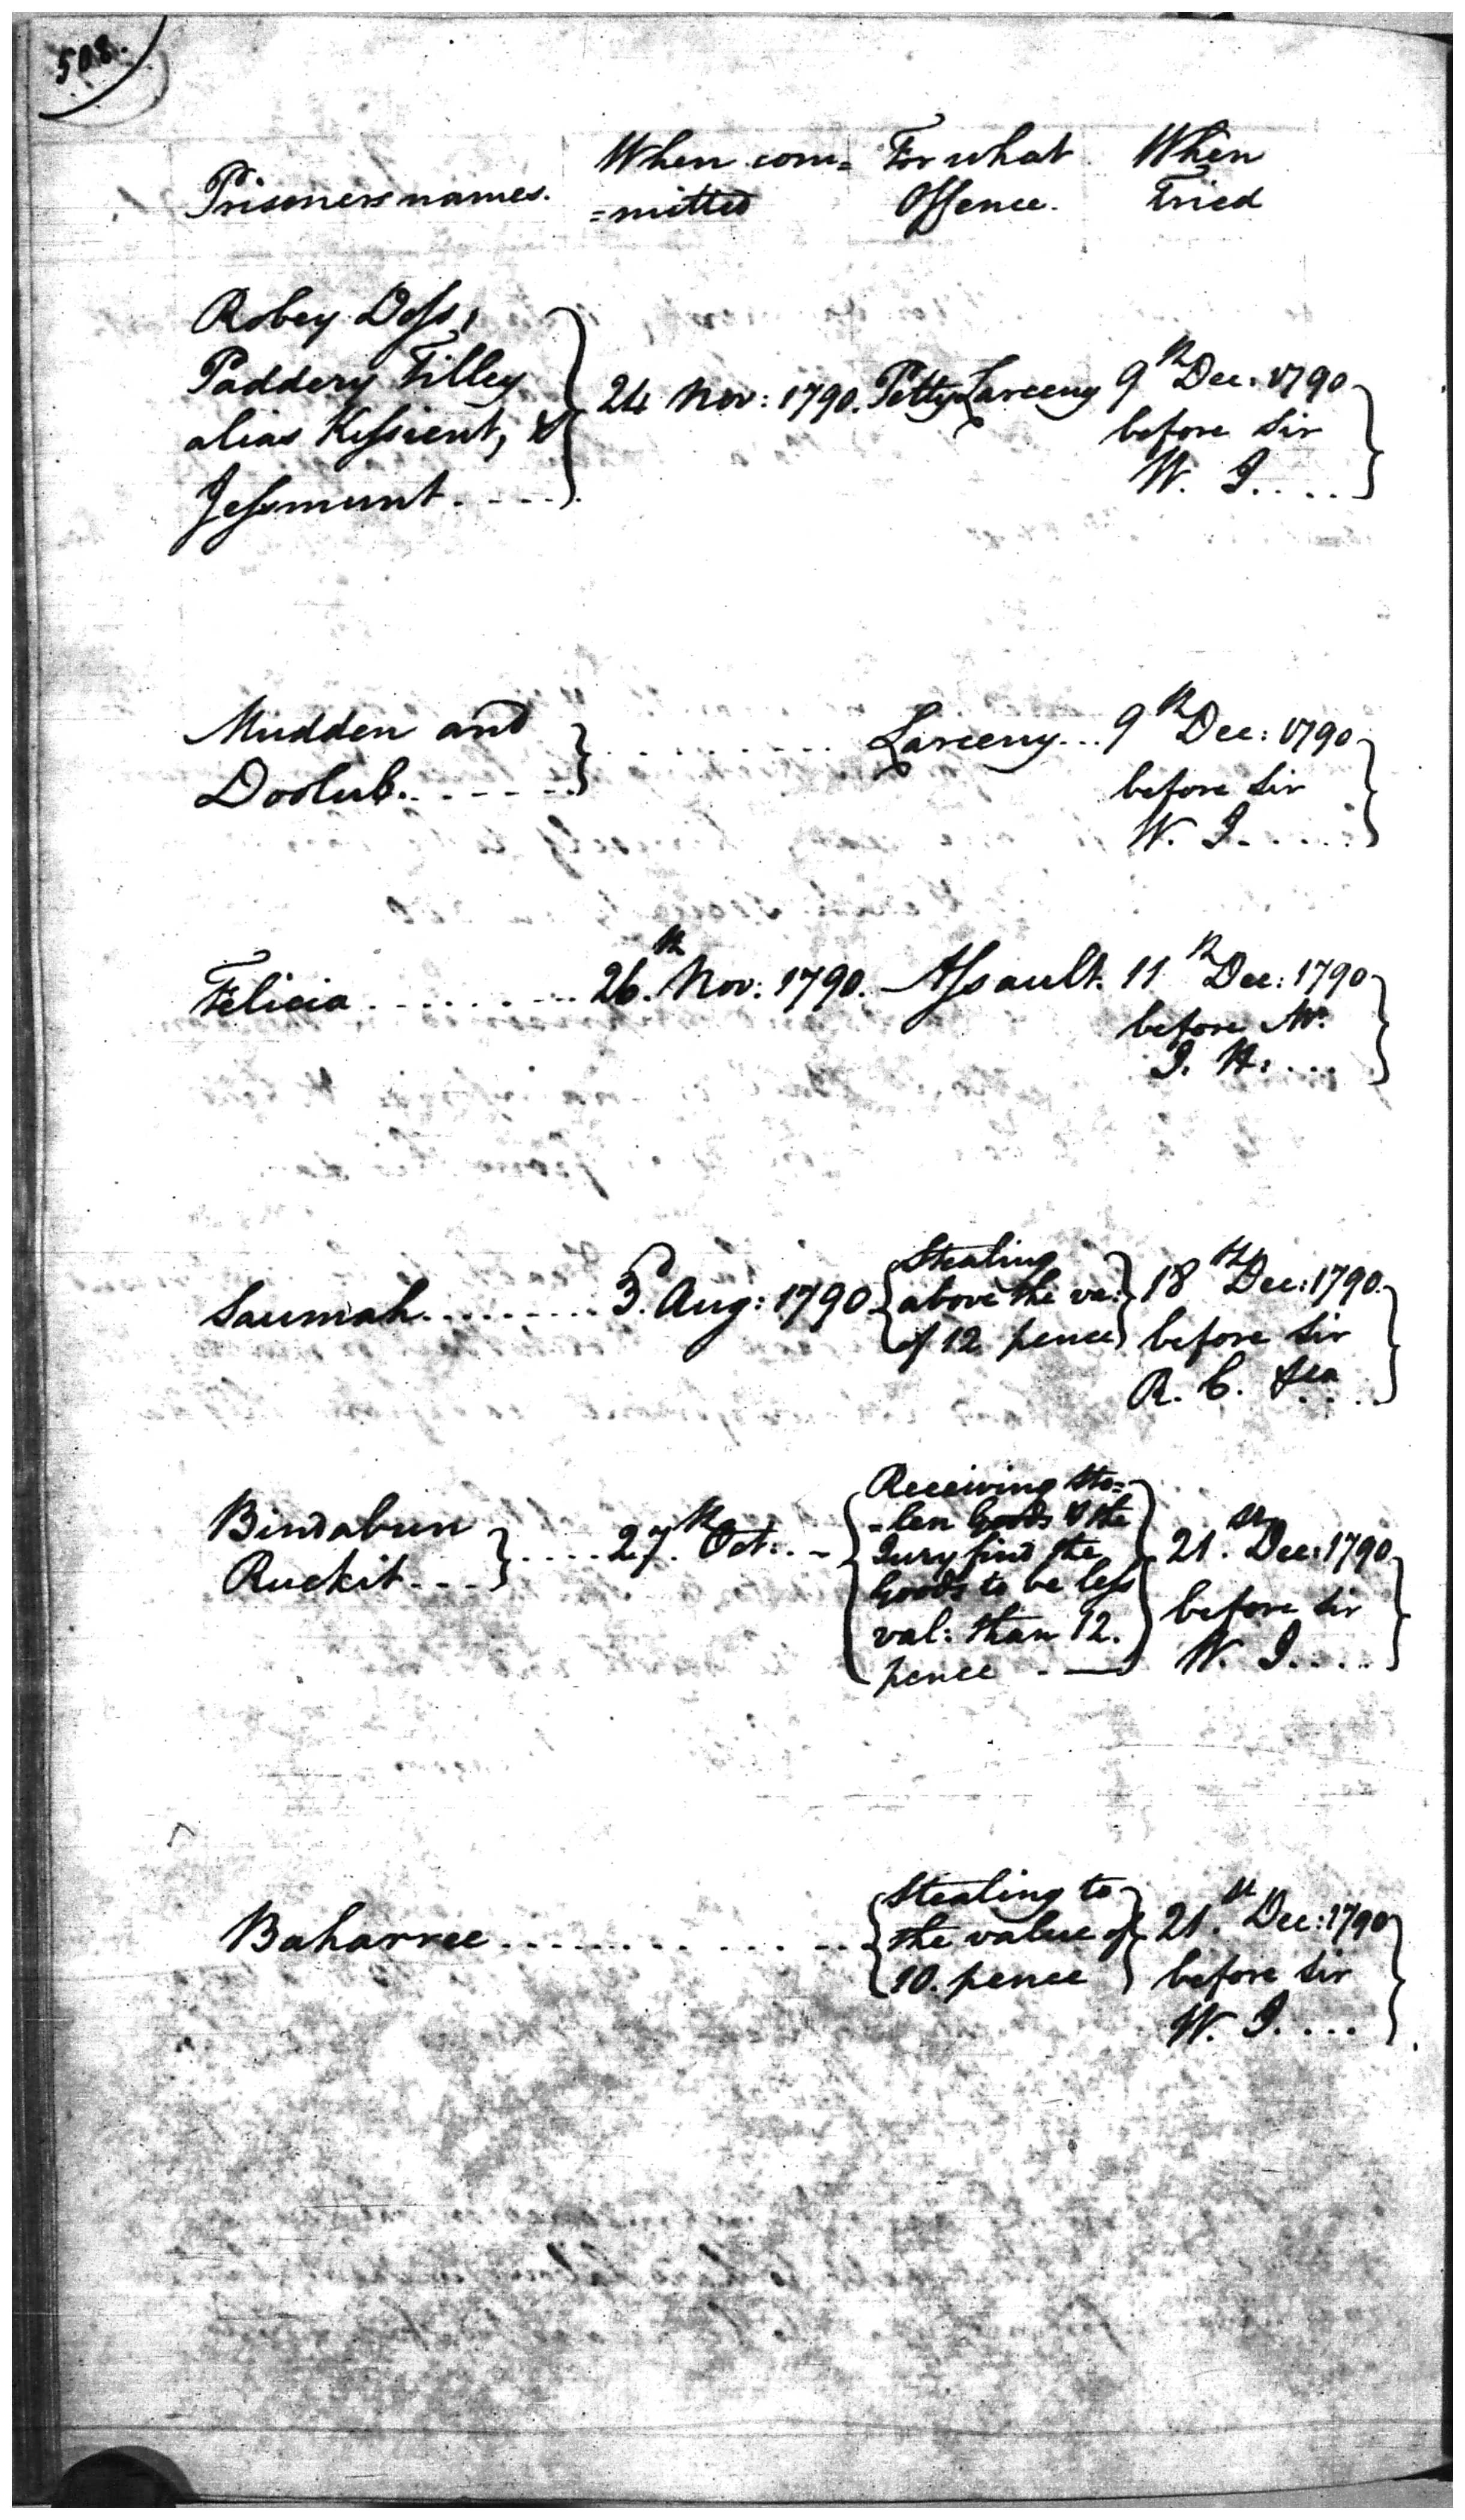 508.
Prisoners names. When com= For what When
=mitted Offence. Tried
Robey Doss,
Paddery Tilley
alias Kissient, &
Jessmunt. - - - -
24 Nov: 1790. Petty Larceny 9th Dec: 1790
before Sir
W. J. . . .
Mudden and
Doolub. - - - - -
. . . . . . . . . Larceny... 9th Dec: 1790
before Sir
W. J. . . . .
Felicia . . . . . . . . . 26th Nov: 1790. Assault. 11th Dec: 1790
before Mr.
J. H: . . .
Saumah . . . . . . . . . 3d Aug: 1790
Stealing
above the va:
of 12 pence
18th Dec: 1790.
before Sir
R. C.
Bindabun
Ruckit - - -
. . . . 27th Oct: . -
Receiving sto=
=len Goods & the
Jury find the
Goods to be less
val: than 12.
pence . —
21st Dec: 1790
before Sir
W. J. . . .
Baharree . . . . . . . . . . . .
Stealing to
the value of
10. pence
21st Dec: 1790
before Sir
W. J. . . .